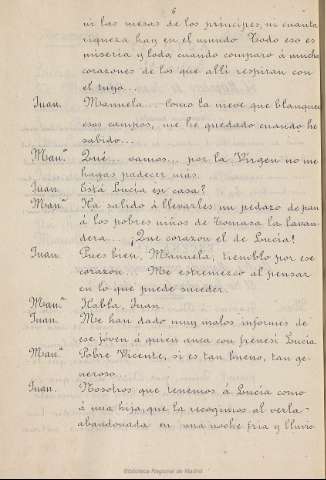 6
ni las mesas de los príncipes, ni cuanta
riqueza hay en el mundo. Todo eso es
miseria y lodo, cuando comparo á muchos
corazones de los que allí respiran con
el tuyo...
Juan. Manuela... Como la nieve que blanquea
esos campos, me he quedado cuando he
sabido...
Man.ª Qué... vamos... por la Virgen no me
hagas padecer más.
Juan. Está Lucía en casa?
Man.ª Ha salido á llevarles un pedazo de pan
á los pobres niños de Tomasa la lavan-
dera... ¡Que corazon el de Lucía!
Juan. Pues bien, Manuela, tiemblo por ese
corazon... Me estremezco al pensar
en lo que puede suceder.
Man.ª Habla, Juan.
Juan. Me han dado muy malos informes de
ese jóven á quien ama con frenesí Lucía
Man.ª Pobre Vicente, si es tan bueno, tan ge-
neroso...
Juan. Nosotros que tenemos á Lucía como
á una hija, que la recogimos al verla
abandonada en una noche fría y lluvio
Biblioteca Regional de Madrid